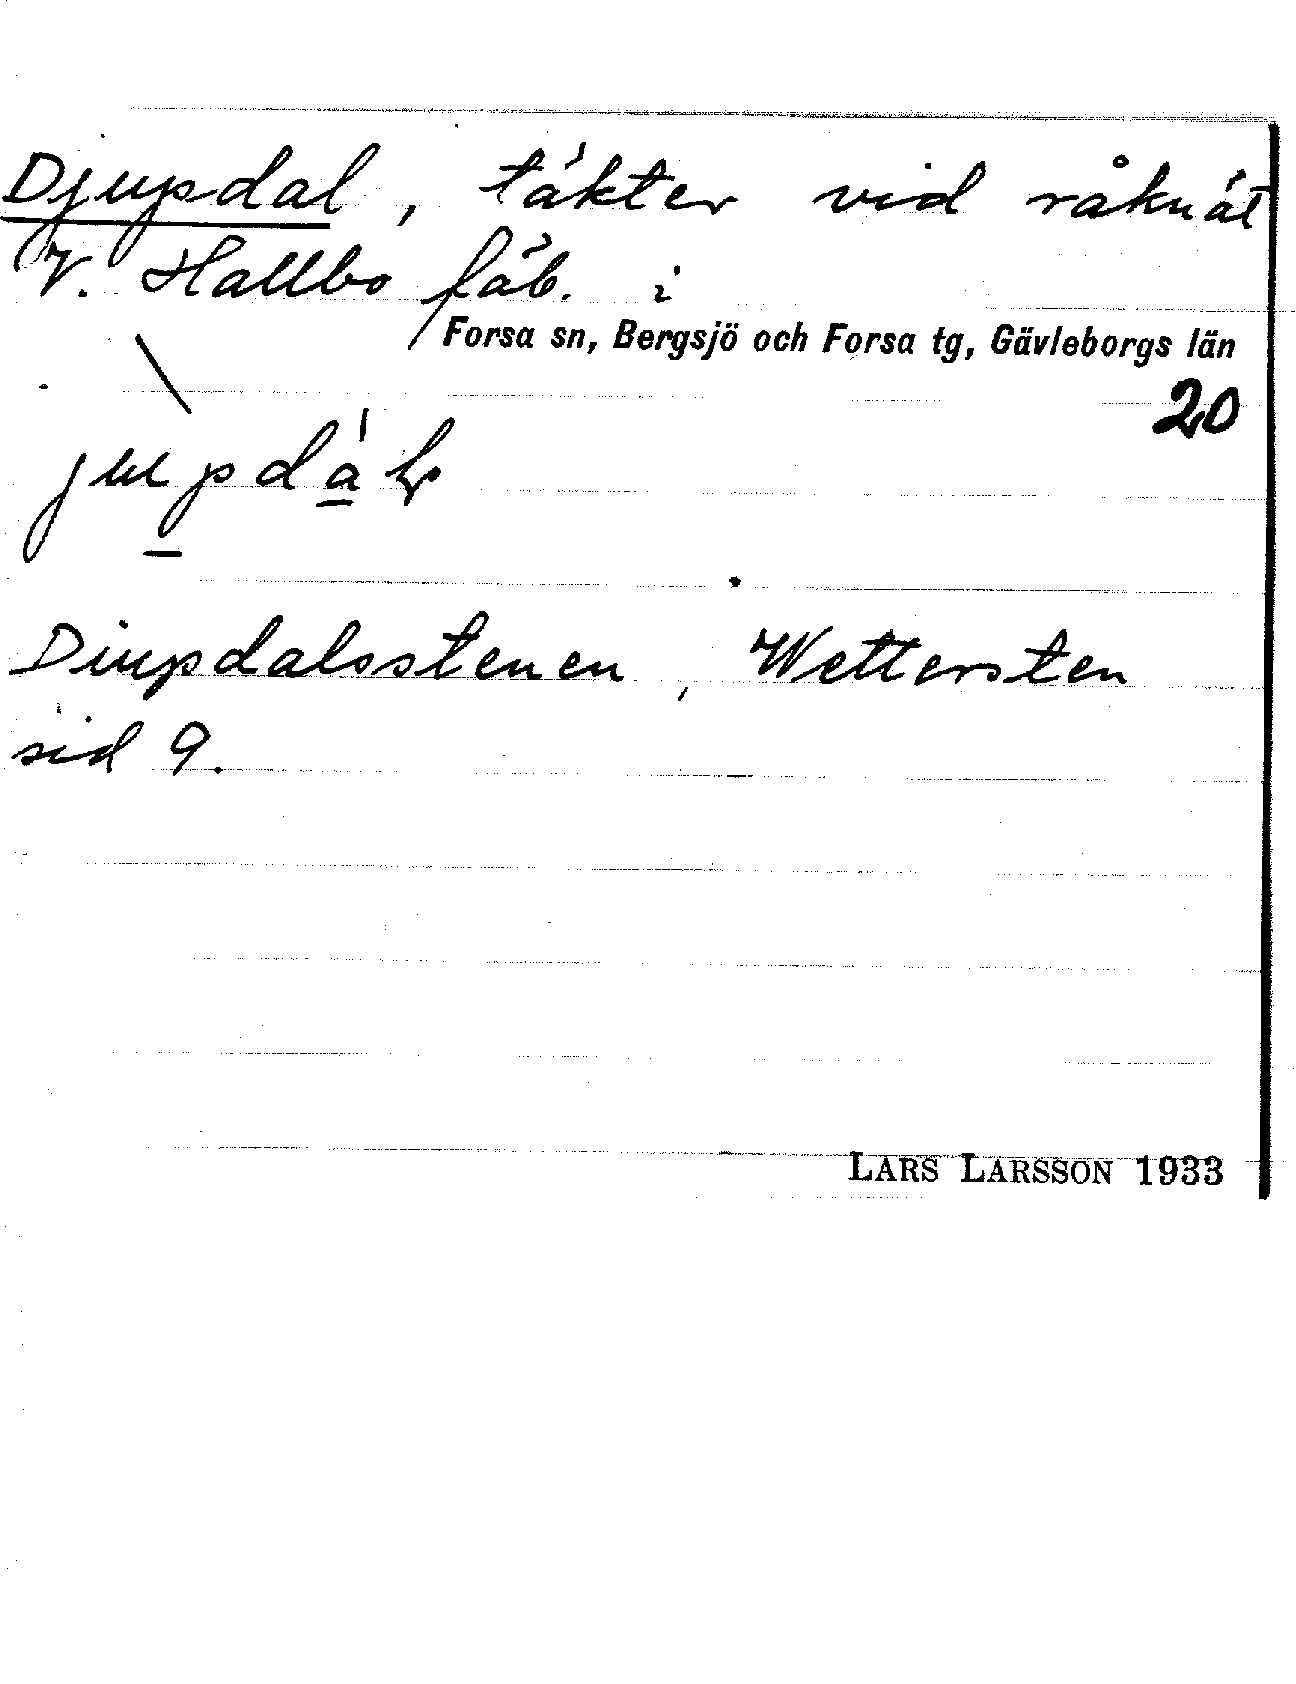 Djupdal, täkter vid råkn åt
V. Hallbo fäb. i
Forsa sn, Bergsjö och Forsa tg, Gävleborgs län
20
Diupdalsstenen, Wettersten
sid 9.
LARS LARSSON 1933